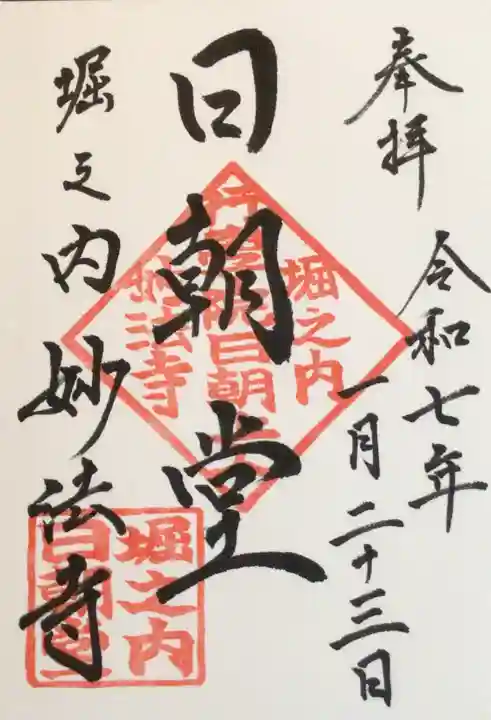 奉拝
令和七年
一月二十三日
日朝堂
堀之内妙法寺
堀之内
日朝
妙法寺
堀之内
日朝堂